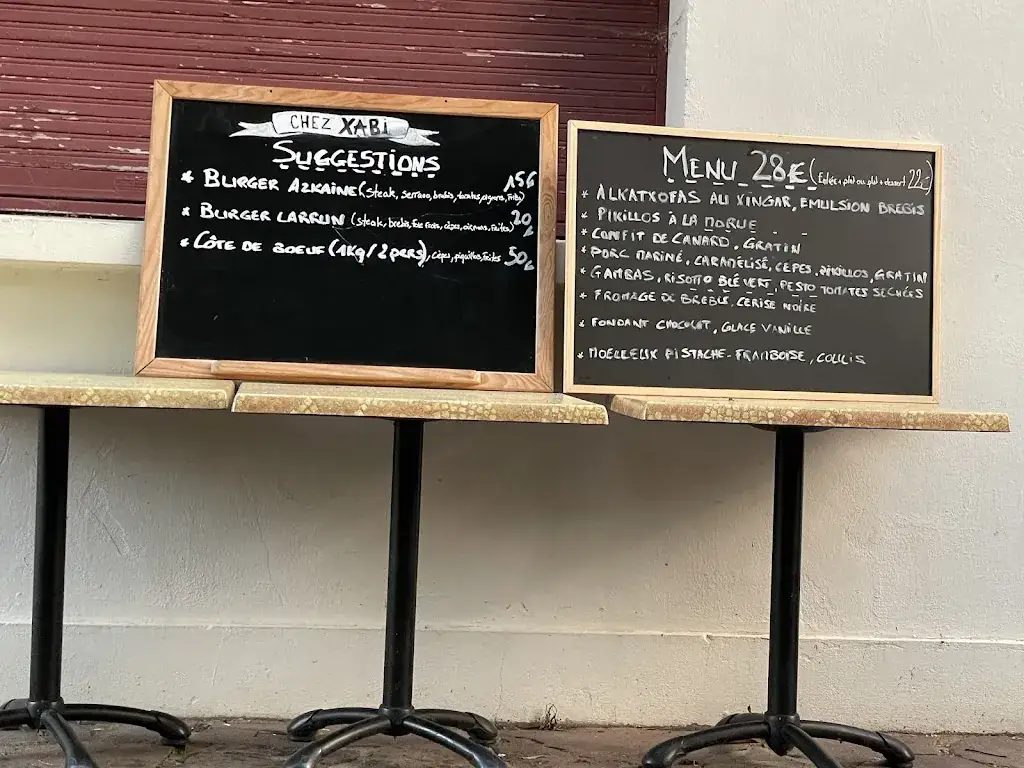 CHEZ XABI
SUGGESTIONS
* BURGER AZKAINE (steak, serrano, brebis, tomates, oignons, frites) 15€
* BURGER LARRUN (steak, brebis, foie frais, cèpes, oignons, frites) 20€
* CÔTE DE BOEUF (1Kg / 2 pers), cèpes, piquillos, frites 50€
MENU 28€ (Entrée + plat ou plat + dessert 22€)
* ALKATXOFAS AU XINGAR, EMULSION BREBIS
* PIKILLOS À LA MORUE
* CONFIT DE CANARD, GRATIN
* PORC MARINÉ, CARAMÉLISÉ, CÈPES, PIKILLOS, GRATIN
* GAMBAS, RISOTTO BLÉ VERT, PESTO TOMATES SECHÉES
* FROMAGE DE BREBIS, CERISE NOIRE
* FONDANT CHOCOLAT, GLACE VANILLE
* MOELLEUX PISTACHE-FRAMBOISE, COULIS